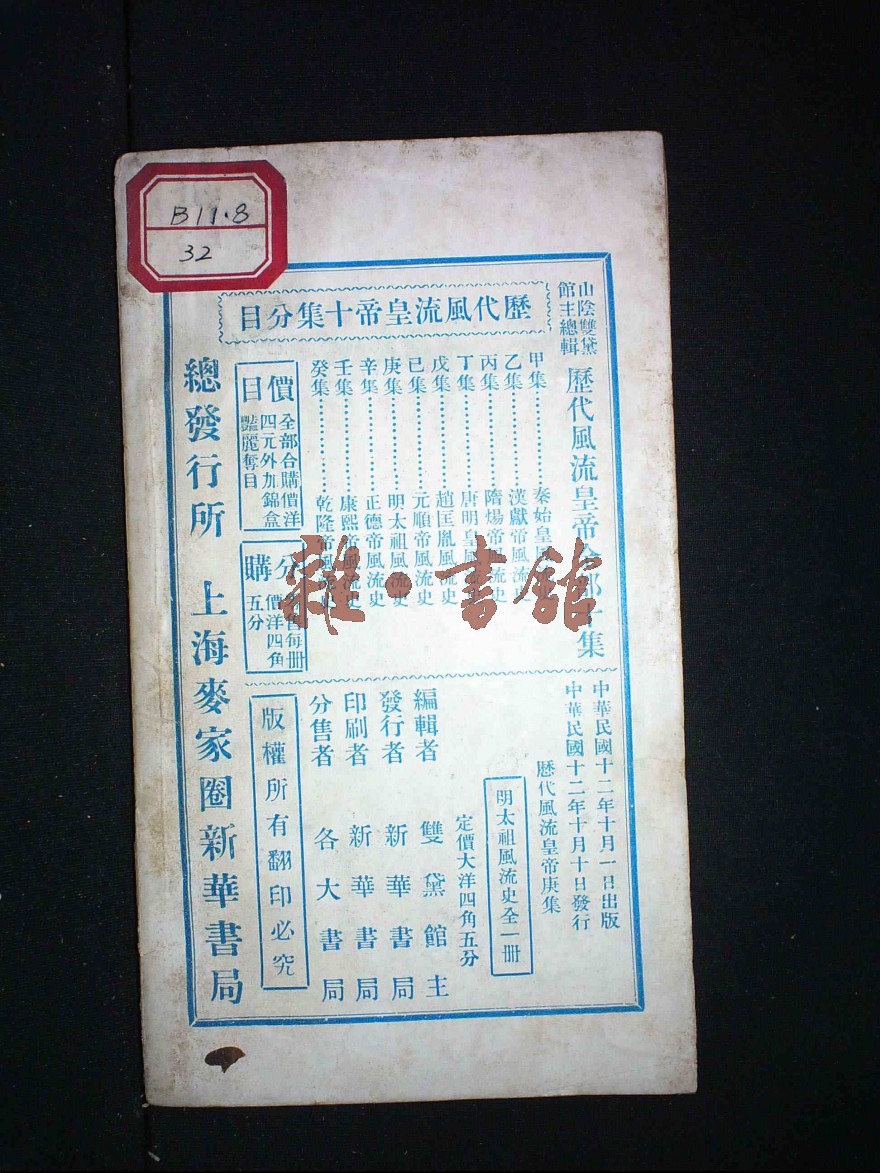 B11.8
32
山陰雙黛
館主總輯
歷代風流皇帝全部十集
歷代風流皇帝十集分目
甲集⋯⋯⋯⋯秦始皇風流史
乙集⋯⋯⋯⋯漢獻帝風流史
丙集⋯⋯⋯⋯隋煬帝風流史
丁集⋯⋯⋯⋯唐明皇風流史
戊集⋯⋯⋯⋯趙匡胤風流史
已集⋯⋯⋯⋯元順帝風流史
庚集⋯⋯⋯⋯明太祖風流史
辛集⋯⋯⋯⋯正德帝風流史
壬集⋯⋯⋯⋯康熙帝風流史
癸集⋯⋯⋯⋯乾隆帝風流史
價目
全部合購價洋
四元外加錦盒
豔麗奪目
分購
每冊
價洋四角
五分
中華民國十二年十月一日出版
中華民國十二年十月十日發行
歷代風流皇帝庚集
明太祖風流史全一冊
定價大洋四角五分
編輯者 雙黛館主
發行者 新華書局
印刷者 新華書局
分售者 各大書局
版權所有翻印必究
總發行所 上海麥家圈新華書局
雜·書館